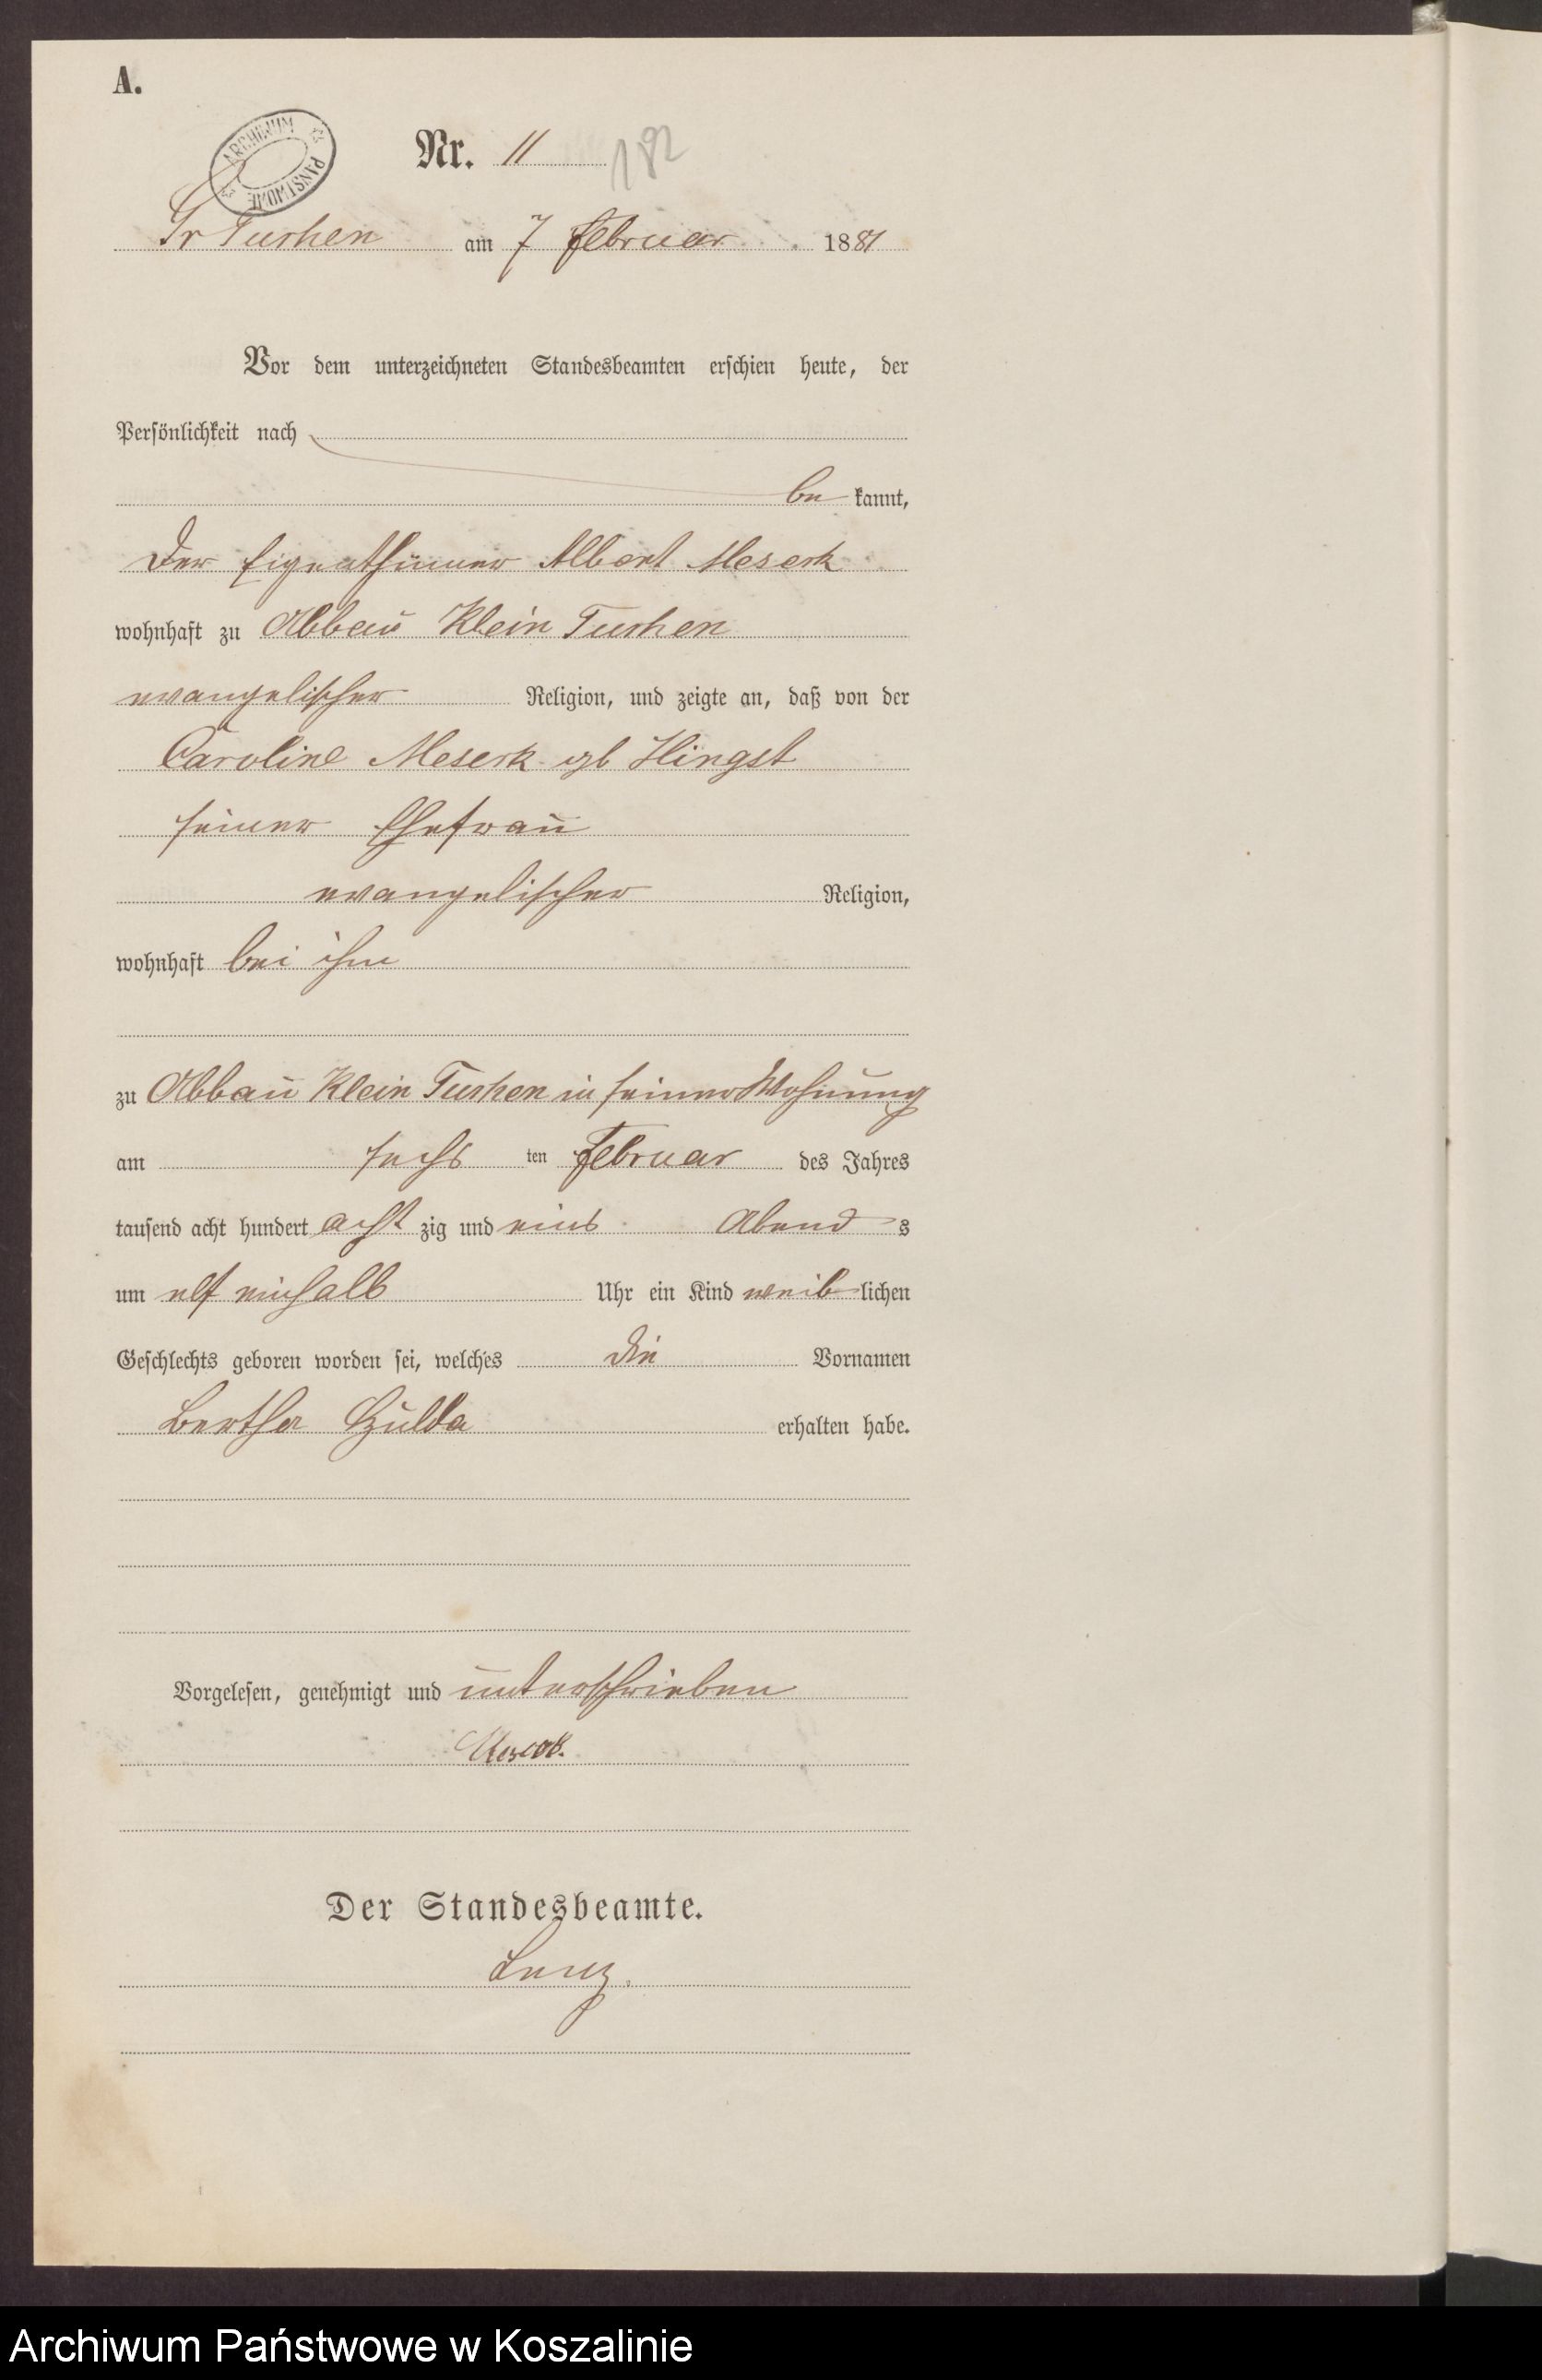 A.
ARCHIWUM PAŃSTWOWE
Nr. 11 182
Gr Tuchen am 7 Februar 1881
Vor dem unterzeichneten Standesbeamten erschien heute, der
Persönlichkeit nach
be kannt,
Der Eigenthümer Albert Meserk
wohnhaft zu Abbau Klein Tuchen
evangelischer Religion, und zeigte an, daß von der
Caroline Meserk gb Hingst
seiner Ehefrau
evangelischer Religion,
wohnhaft bei ihm
zu Abbau Klein Tuchen in seiner Wohnung
am sechs ten Februar des Jahres
tausend acht hundert acht zig und eins Abend s
um elf einhalb Uhr ein Kind weib lichen
Geschlechts geboren worden sei, welches die Vornamen
Bertha Hulda erhalten habe.
Vorgelesen, genehmigt und unterschrieben
Der Standesbeamte.
Lenz.
Archiwum Państwowe w Koszalinie